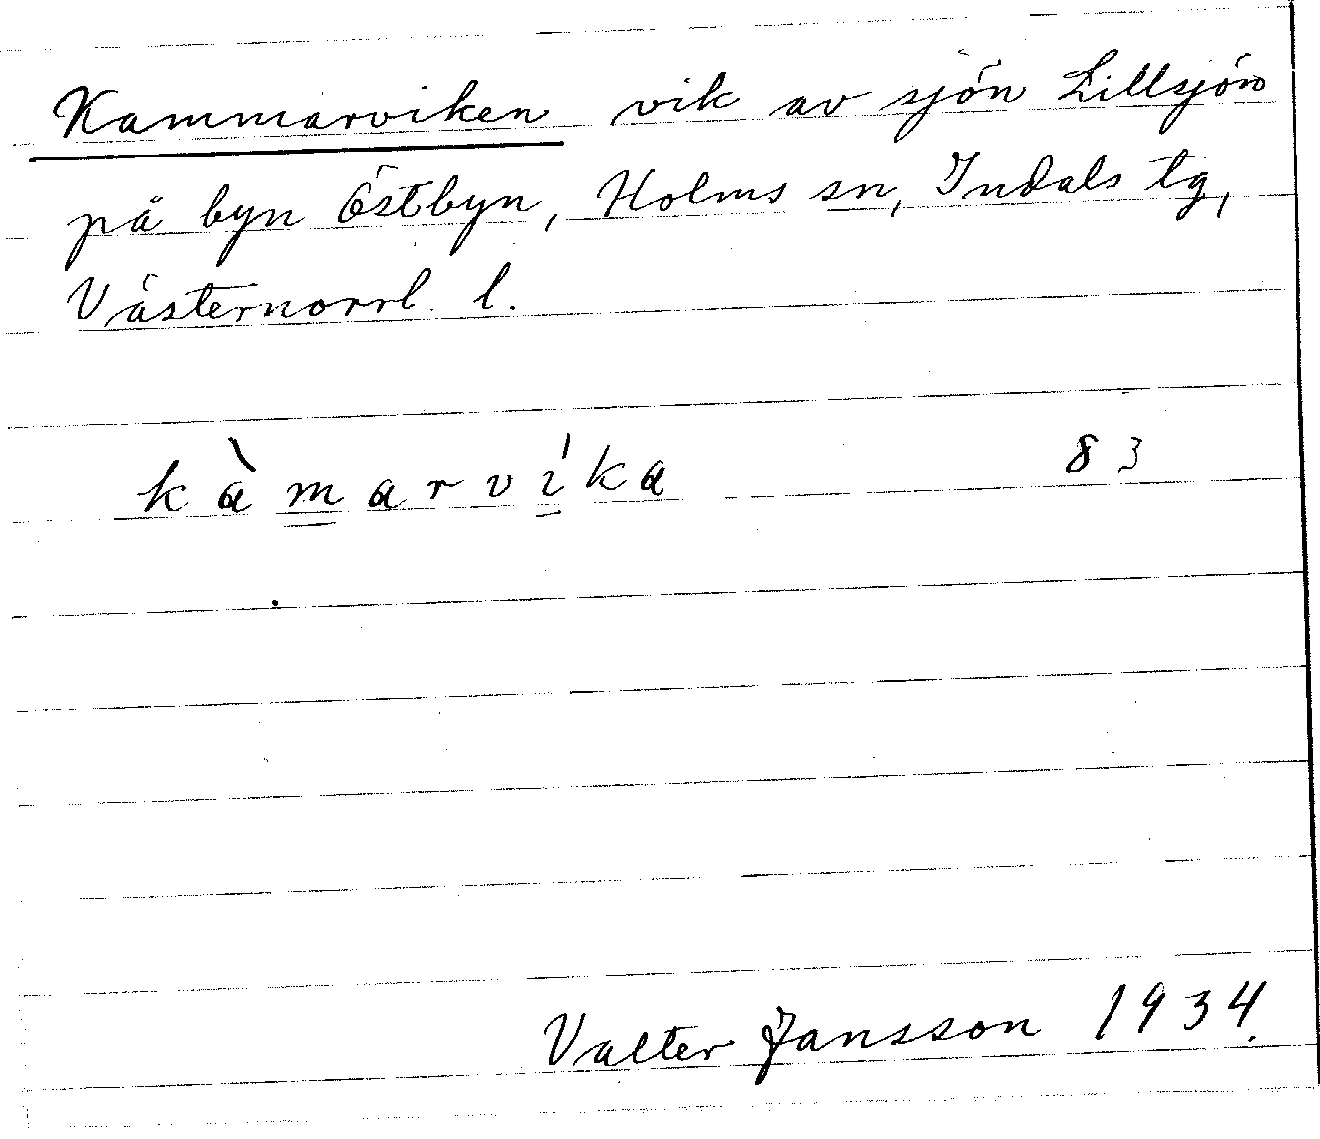 Kammarviken vik av sjön Lillsjön
på byn Östbyn, Holms sn, Indals tg,
Västernorrl. l.
kàmarvíka 83
Valter Jansson 1934.